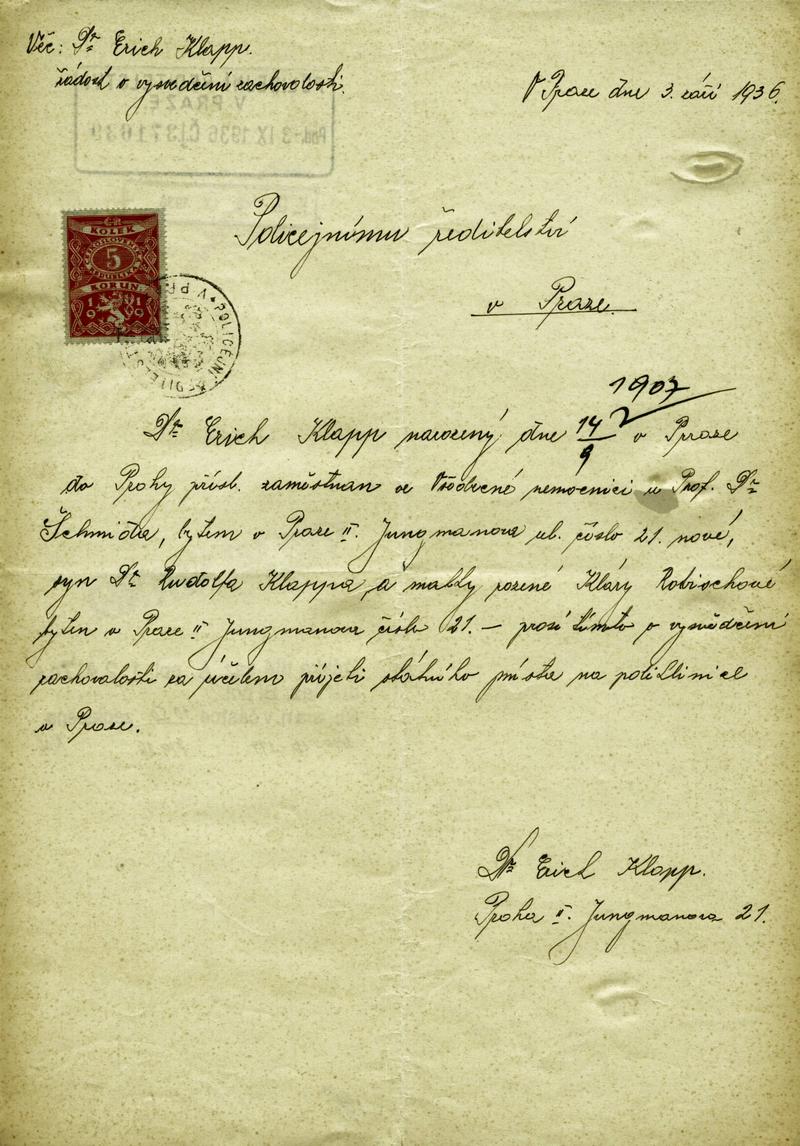 Věc: Dr. Erich Klapp.
žádost o vysvědčení zachovalosti.
V Praze dne 3. září 1936.
V PRAZE
Pod. -3 IX 1936 Čj371039
Policejnímu ředitelství
v Praze.
ČR
KOLEK
ČESKOSLOVENSKÁ
5
REPUBLIKA
KORUN
1919
POLICEJNÍ ŘEDITELSTVÍ V PRAZE
1907
Dr. Erich Klapp narozený dne 14/9 v Praze
do Prahy přísl. zaměstnan ve Všeobecné nemocnici u Prof. Dr.
Schmidta, bytem v Praze II. Jungmanova ul. číslo 21. nové,
syn Dr. Rudolfa Klappa, a matky rozené Kláry Robitschkové
bytem v Praze II Jungmanova číslo 21. — prosí tímto o vysvědčení
zachovalosti za účelem přijetí státního místa na poliklinice
v Praze.
Dr. Erich Klapp.
Praha II. Jungmanova 21.